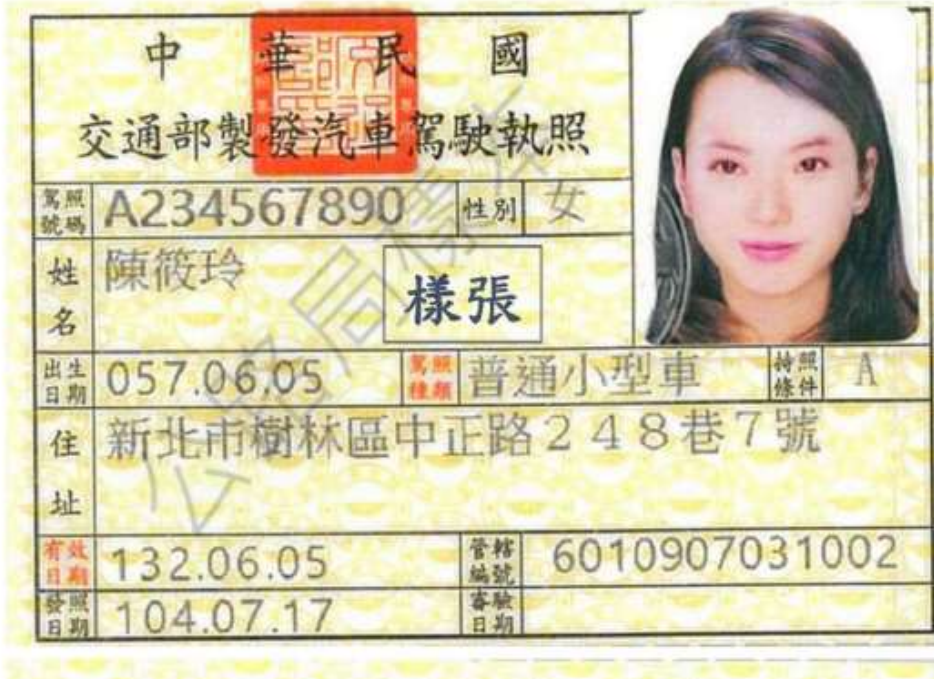 中華民國
交通部製發汽車駕駛執照
駕照號碼 A234567890 性別 女
姓名 陳筱玲
樣張
出生日期 057.06.05 駕照種類 普通小型車 持照條件 A
住址 新北市樹林區中正路248巷7號
有效日期 132.06.05 管轄編號 6010907031002
發照日期 104.07.17 審驗日期
公路局標本